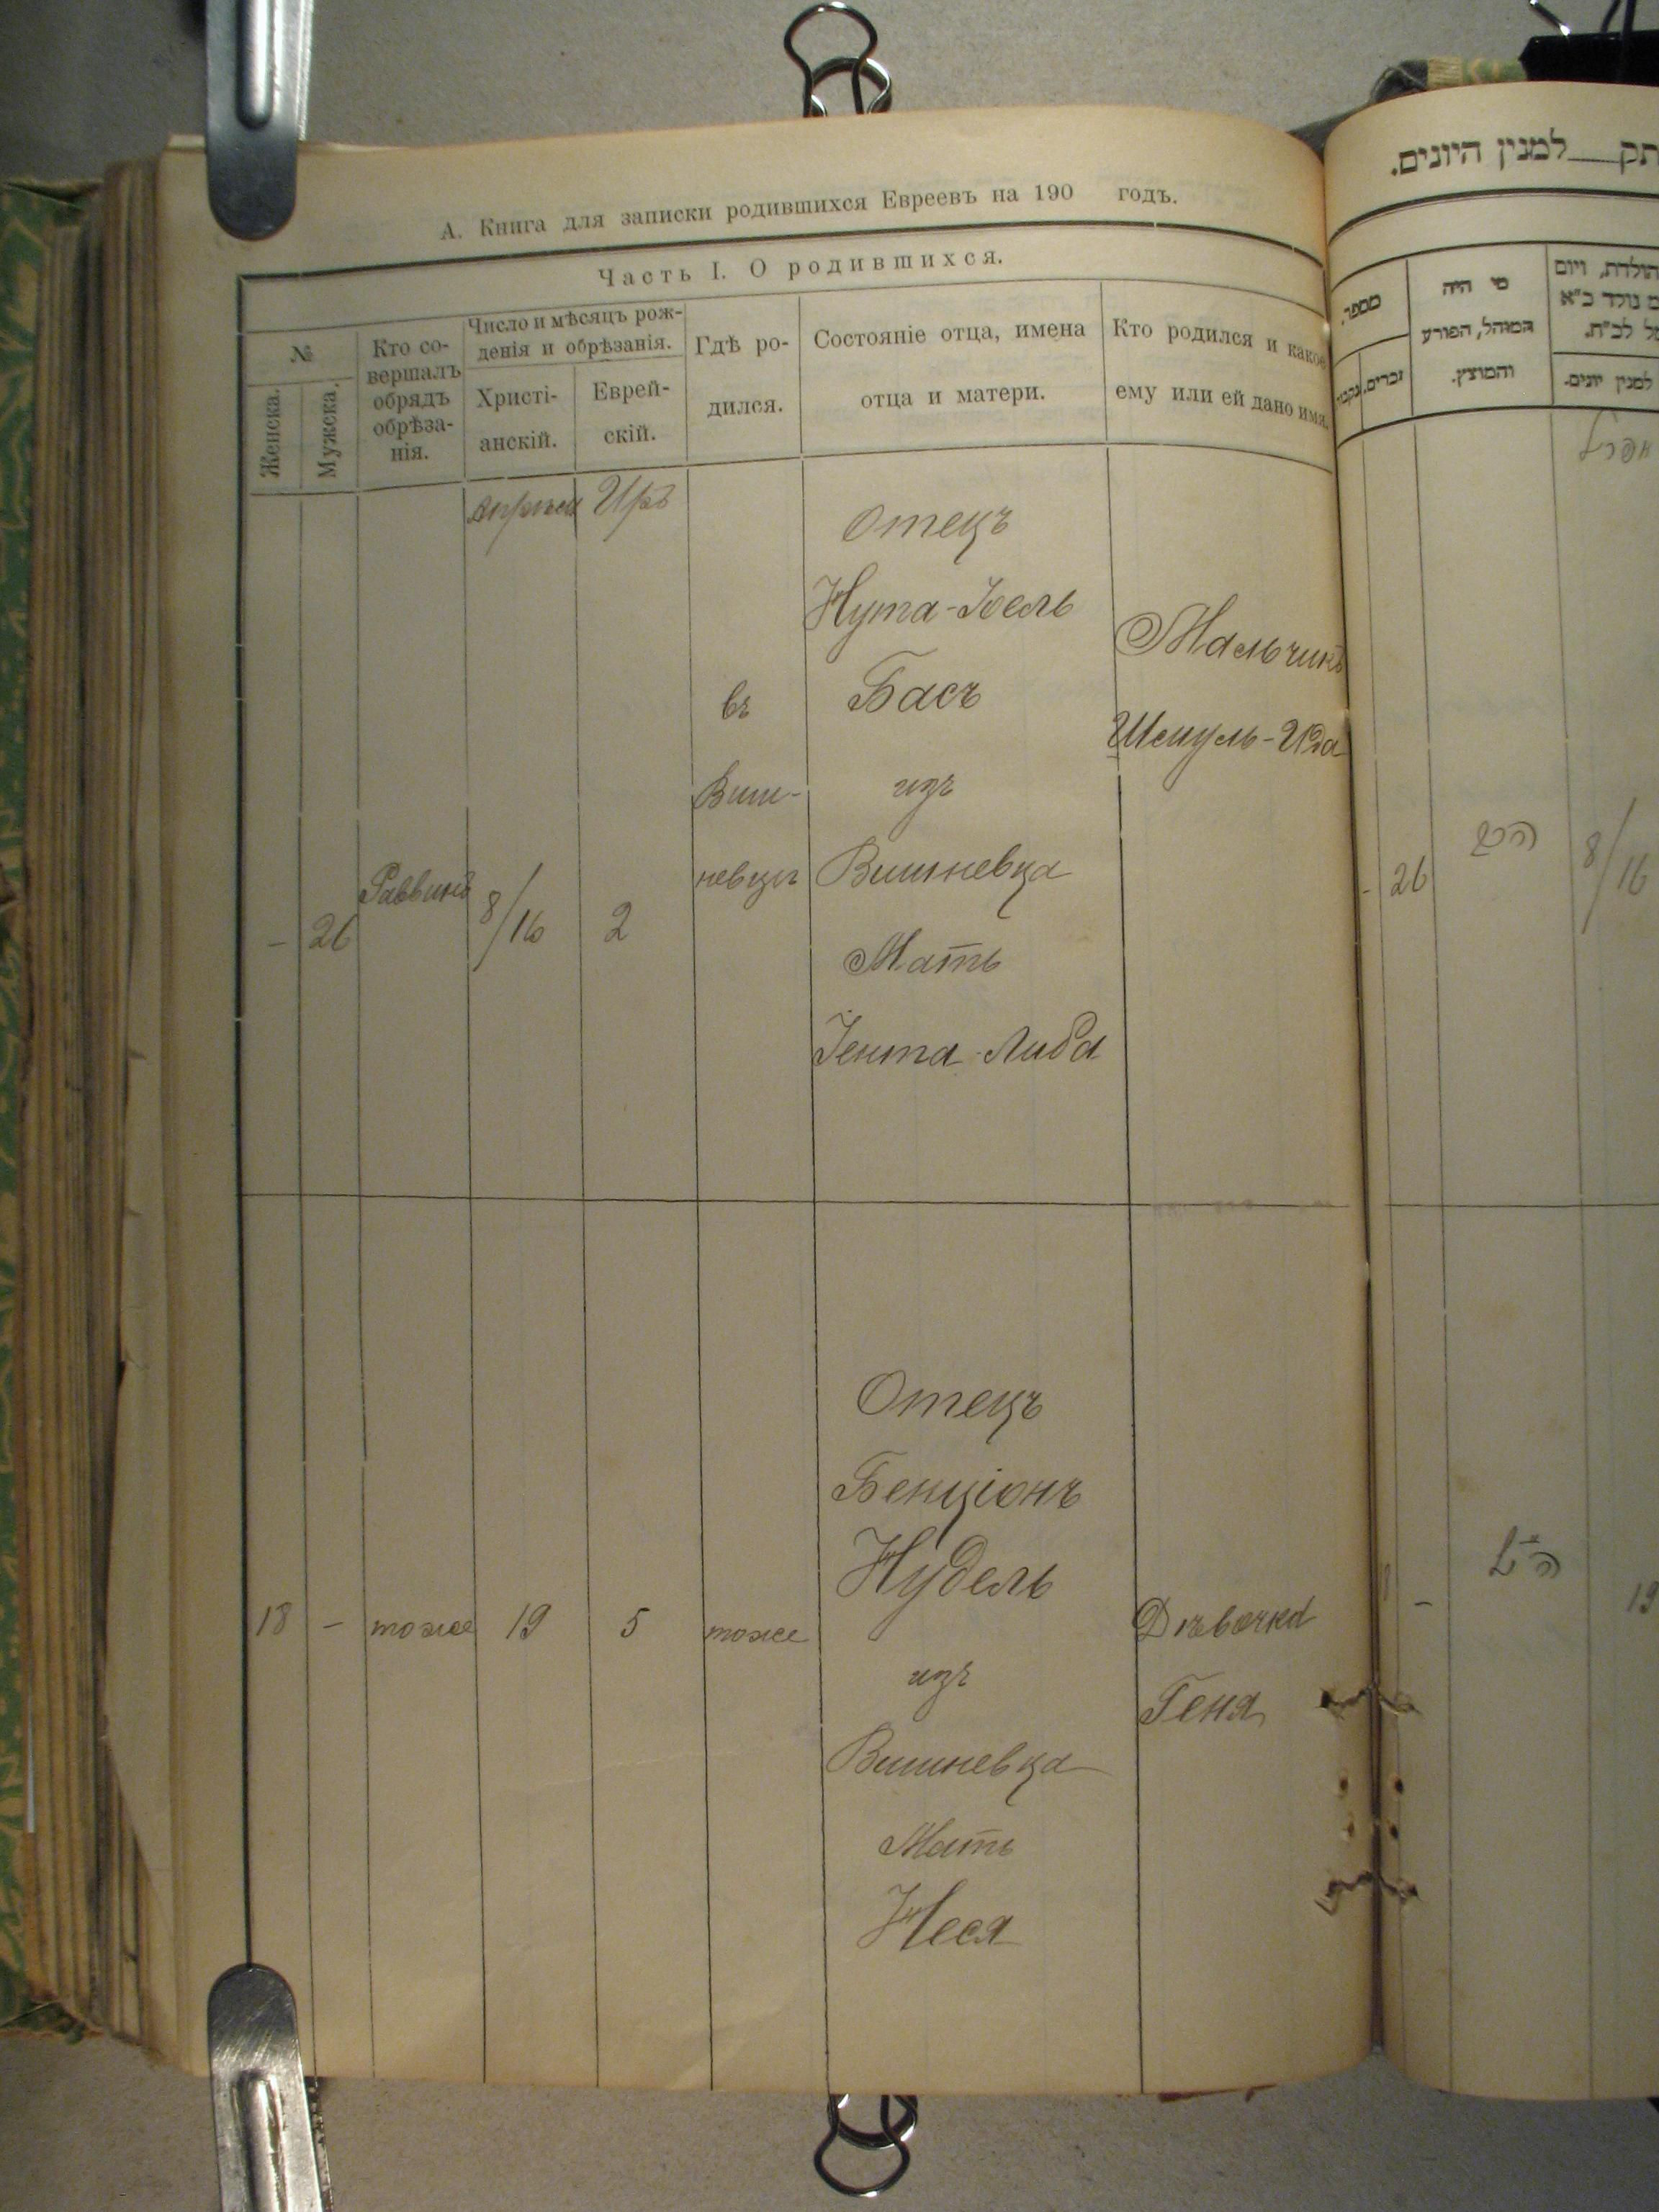 А. Книга для записки родившихся Евреевъ на 190 годъ.
Часть I. О родившихся.
№
Женска.
Мужска.
Кто со-
вершалъ
обрядъ
обрѣза-
нія.
Число и мѣсяцъ рож-
денія и обрѣзанія.
Христі-
анскій.
Еврей-
скій.
Гдѣ ро-
дился.
Состояніе отца, имена
отца и матери.
Кто родился и какое
ему или ей дано имя.
Иръ
– 26
Раввинъ
8/16
2
въ
Виш-
невцѣ
Отецъ
Нута-Іоель
Басъ
изъ
Вишневца
Мать
Іента-Либа
Мальчикъ
Шмуль-Ида
18 –
тоже
19
5
тоже
Отецъ
Бенціонъ
Нудель
изъ
Вишневца
Мать
Неся
Дѣвочка
Геня
תק למנין היונים.
מספר.
זכרים.
מי היה
המוהל, הפורע
והמוצץ.
הולדת, ויום
נולד כ"א
למנין יונים.
– 26
8/16
–
19